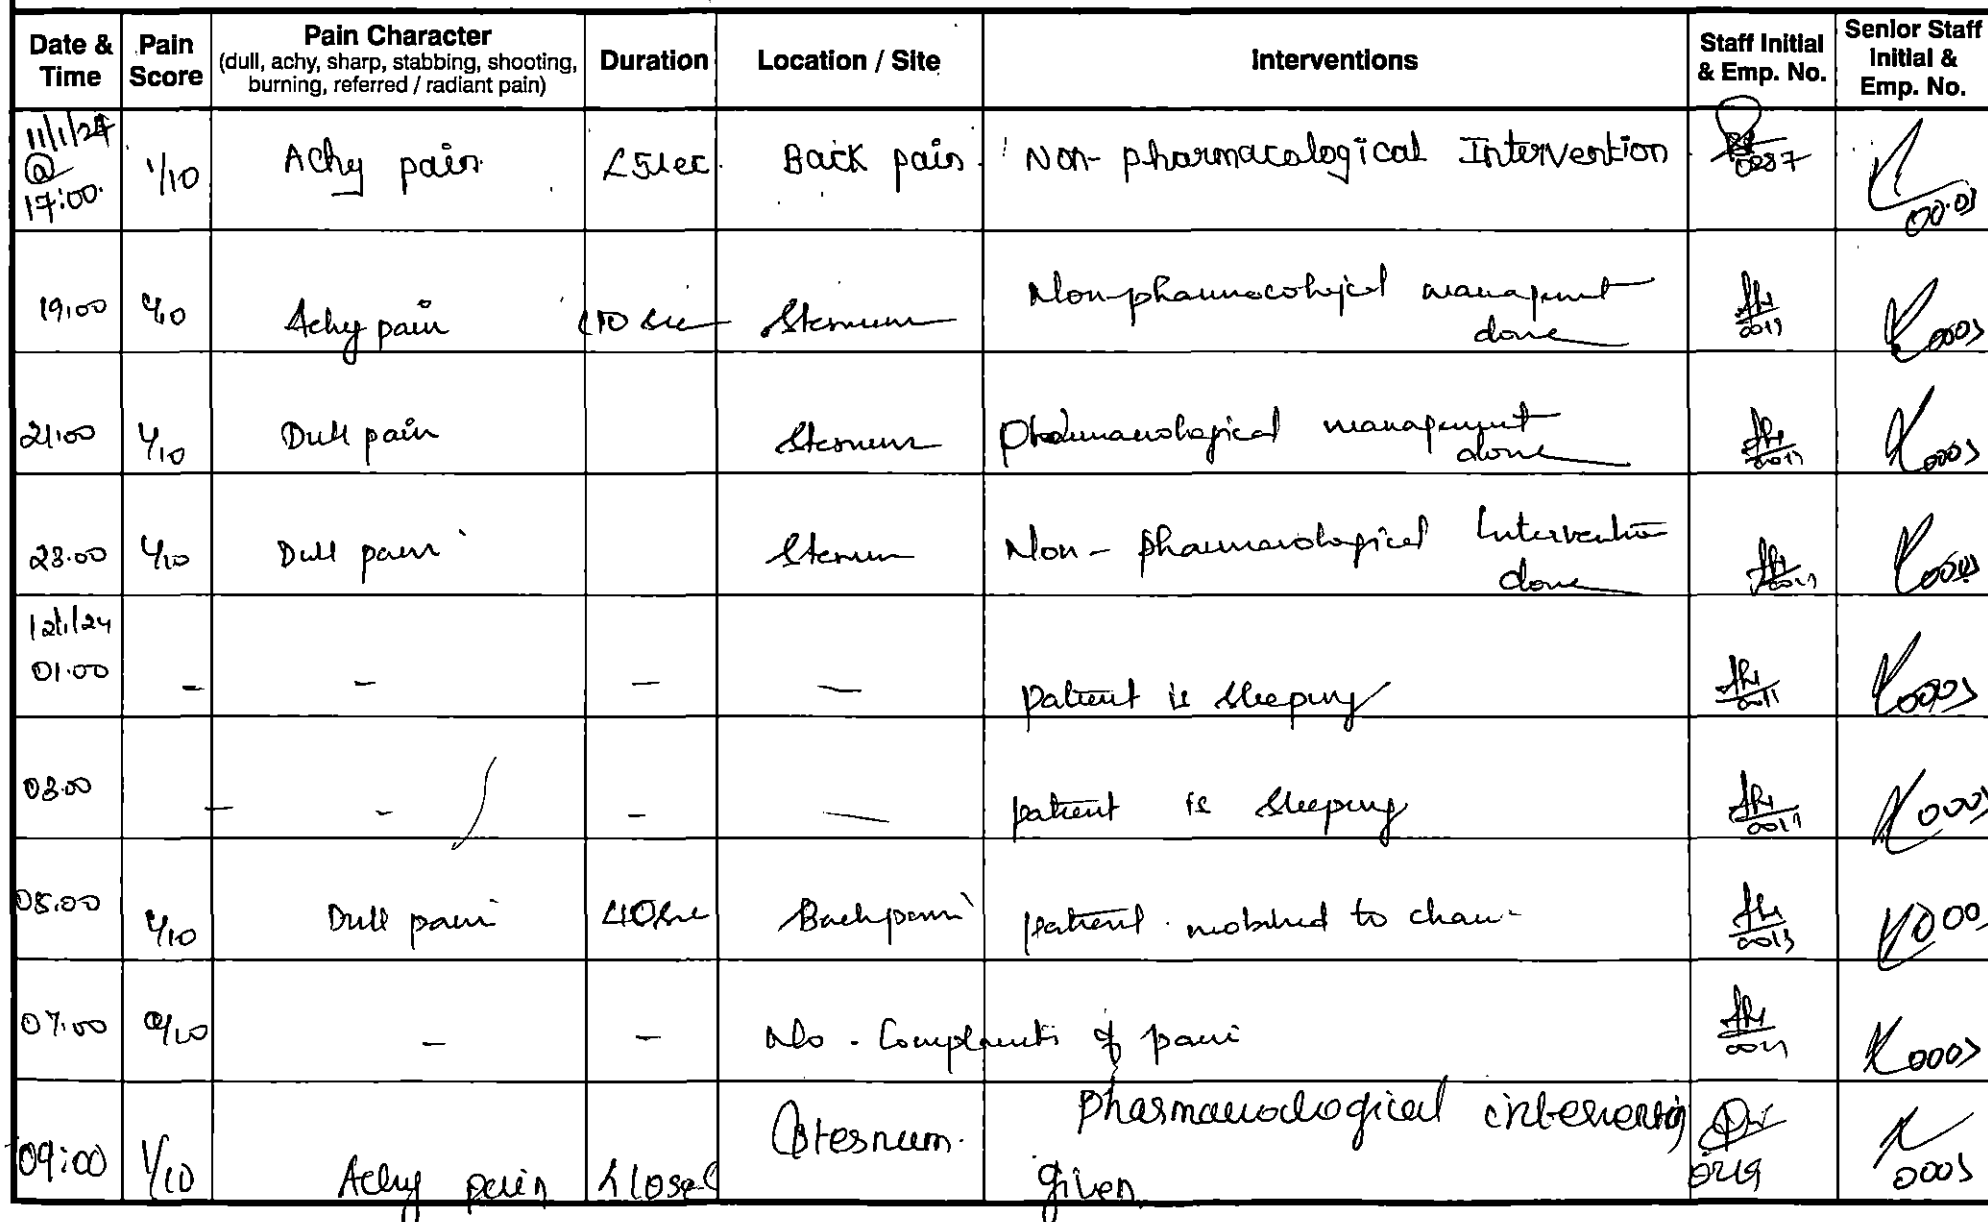 Date & Time | Pain Score | Pain Character (dull, achy, sharp, stabbing, shooting, burning, referred / radiant pain) | Duration | Location / Site | Interventions | Staff Initial & Emp. No. | Senior Staff Initial & Emp. No.
11/1/24 @ 17:00 | 1/10 | Achy pain | <5sec. | Back pain | Non-pharmacological Intervention
19:00 | Achy pain | <10 sec | Sternum | Non pharmacological management done
21:00 | 1/10 | Dull pain | Sternum | Pharmacological management done
23.00 | 1/10 | Dull pain | Sternum | Non-pharmacological Intervention done
12/1/24 01.00 | - | - | - | - | patient is sleeping
03.00 | - | - | - | - | patient is sleeping
05.00 | 1/10 | Dull pain | <10sec | Back pain | patient mobilised to chair
07.00 | 0/10 | - | - | No. Complaints of pain
09:00 | 1/10 | Achy pain | <10sec | Sternum. | Pharmacological intervention given | 0219